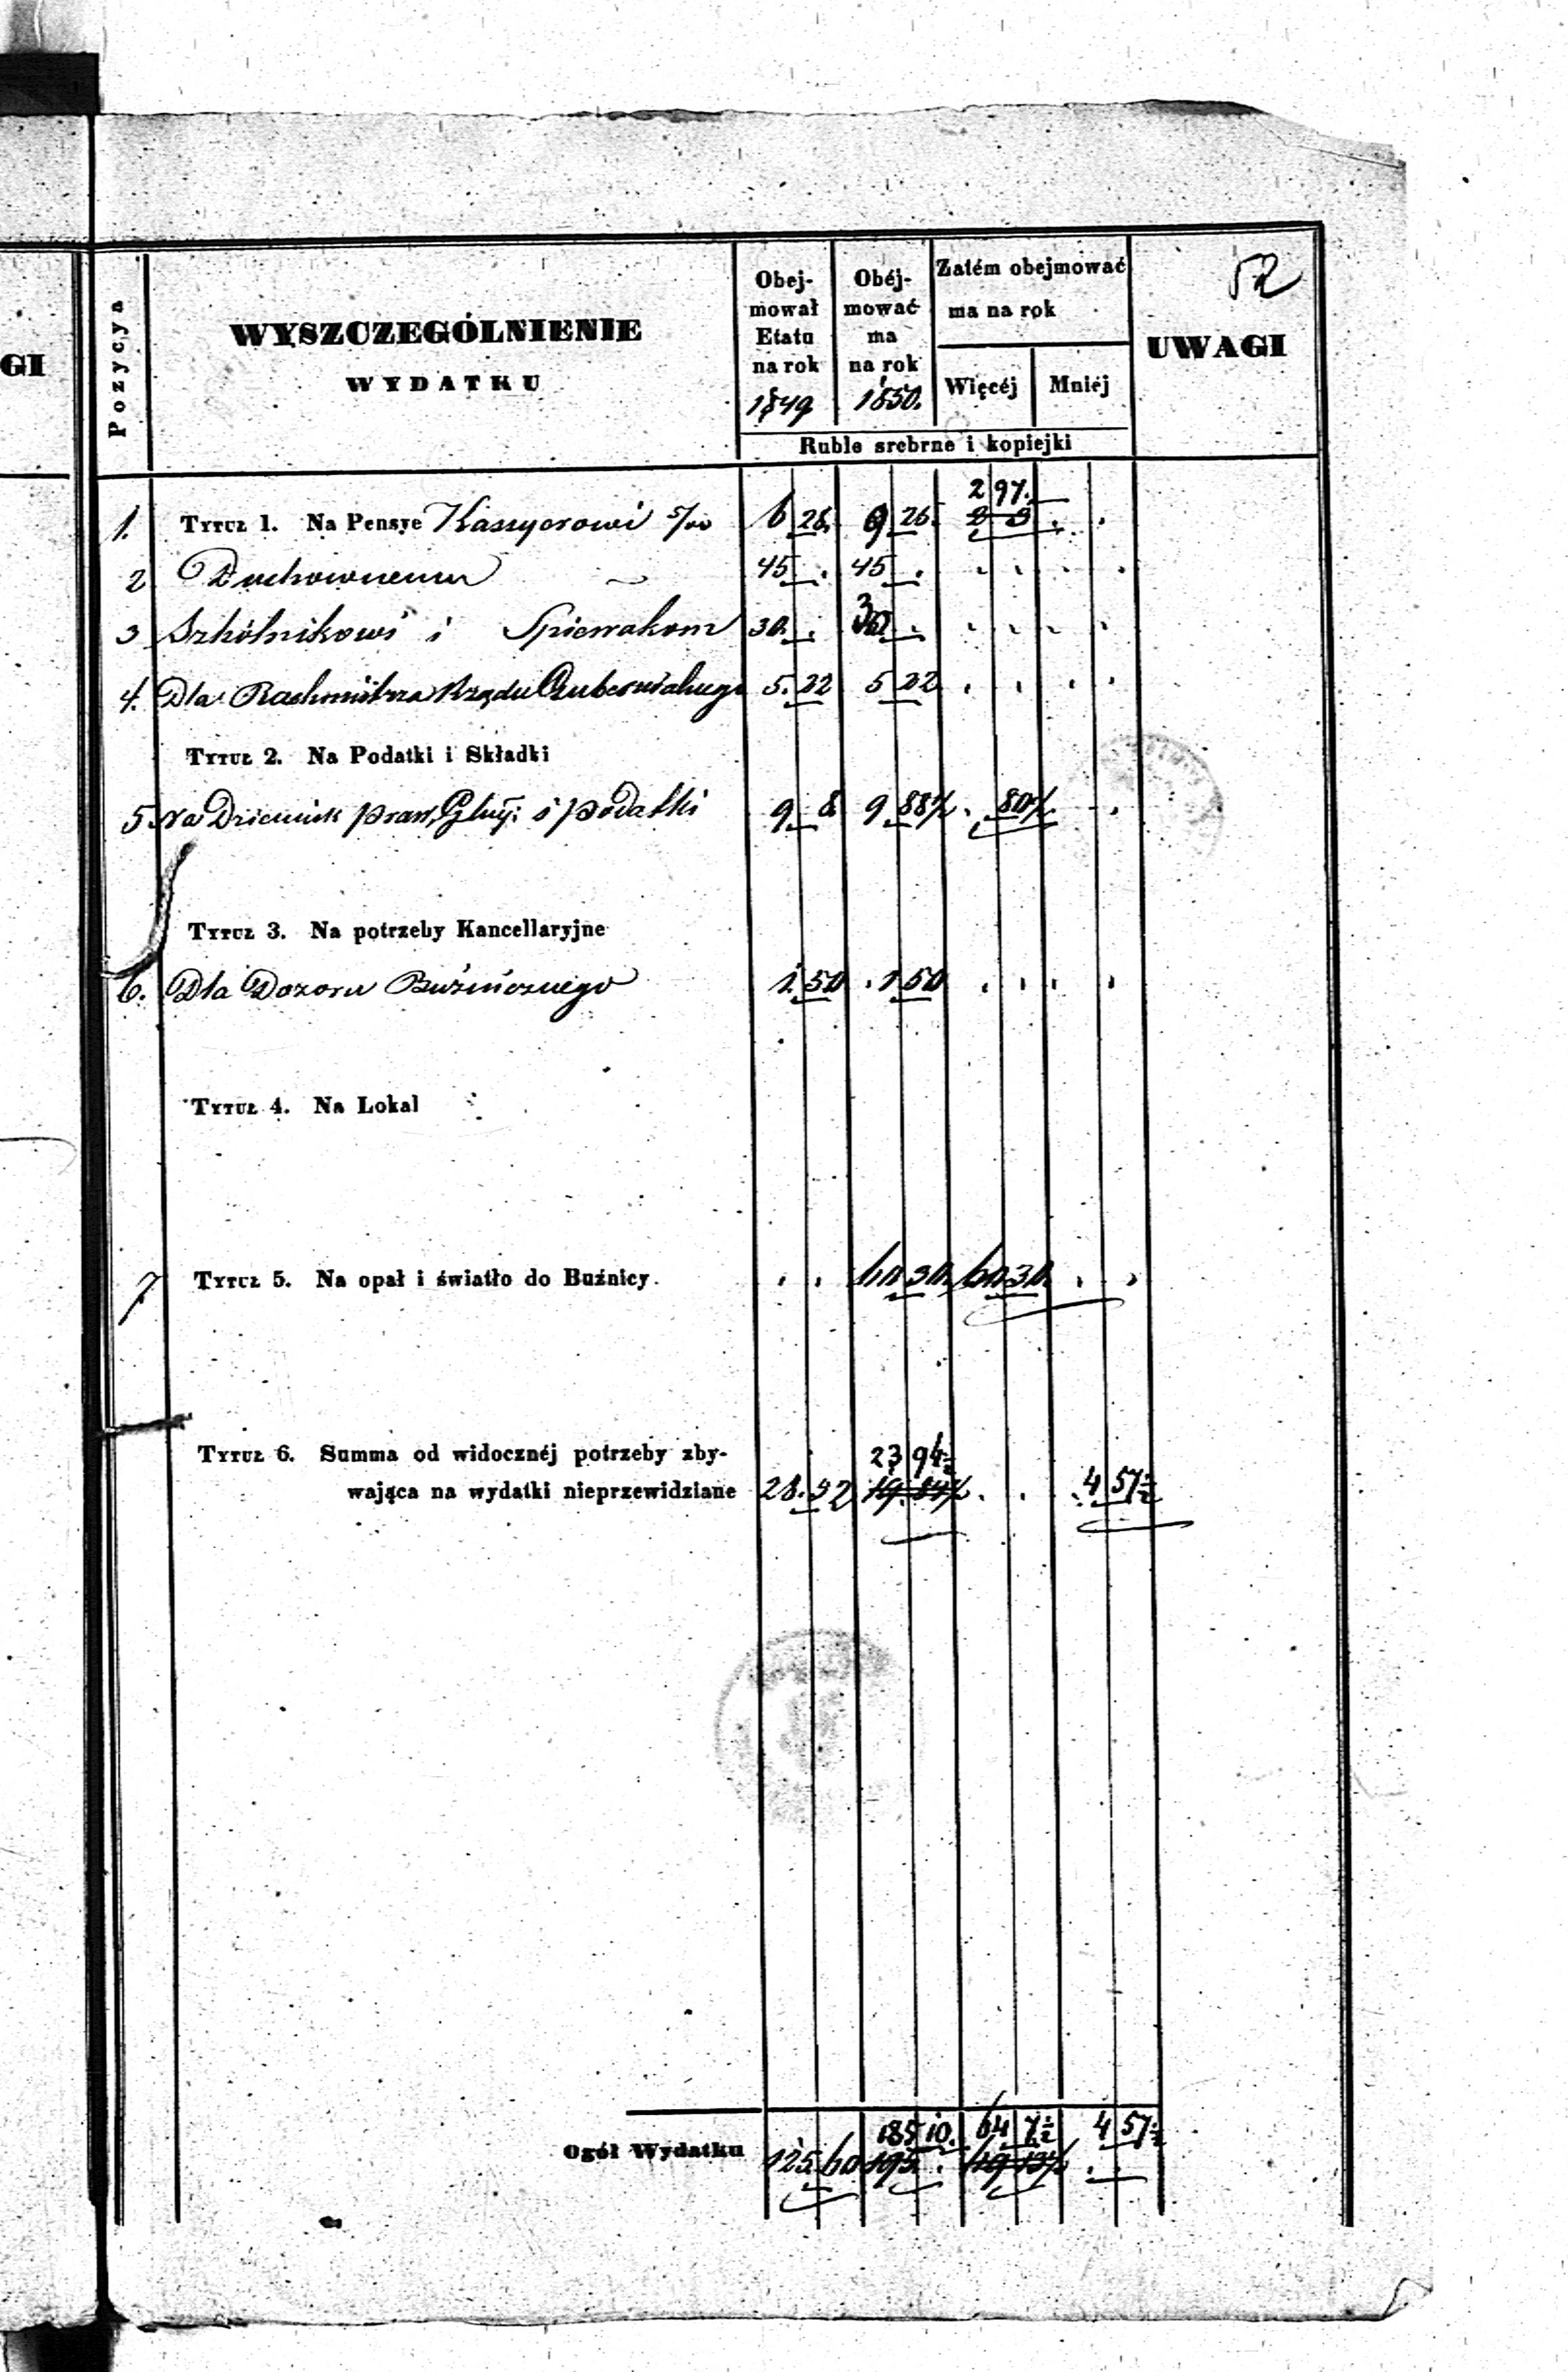 52
GI
Pozycya
WYSZCZEGÓLNIENIE
WYDATKU
Obej-
mował
Etatu
na rok
1849
Obéj-
mować
ma
na rok
1850.
Zatém obejmować
ma na rok
Więcéj Mniéj
UWAGI
Ruble srebrne i kopiejki
2 97.
1. Tytuł 1. Na Pensye Kassyerowi 5/00 6 28. 9 25.
2 Duchownemu 45 . 45 .
3 Szkólnikowi i Spiewakom 30. . 30 .
4. Dla Rachmistrza Rządu Gubernialnego 5. 22 5 22
Tytuł 2. Na Podatki i Składki
5. Na Dziennik praw, i podatki 9 8. 9 88½ . 80½
Tytuł 3. Na potrzeby Kancellaryjne
6. Dla Dozoru Buźnicznego 1. 50 . 1 50
Tytuł 4. Na Lokal
7 Tytuł 5. Na opał i światło do Buźnicy. . . 60 30. 60 30.
Tytuł 6. Summa od widocznéj potrzeby zby- 23 94½
wająca na wydatki nieprzewidziane 28. 52 19. 84½ . . 4 57½
185 10. 64 7½ 4 57½
Ogół Wydatku 125 60 195 . 69 13½